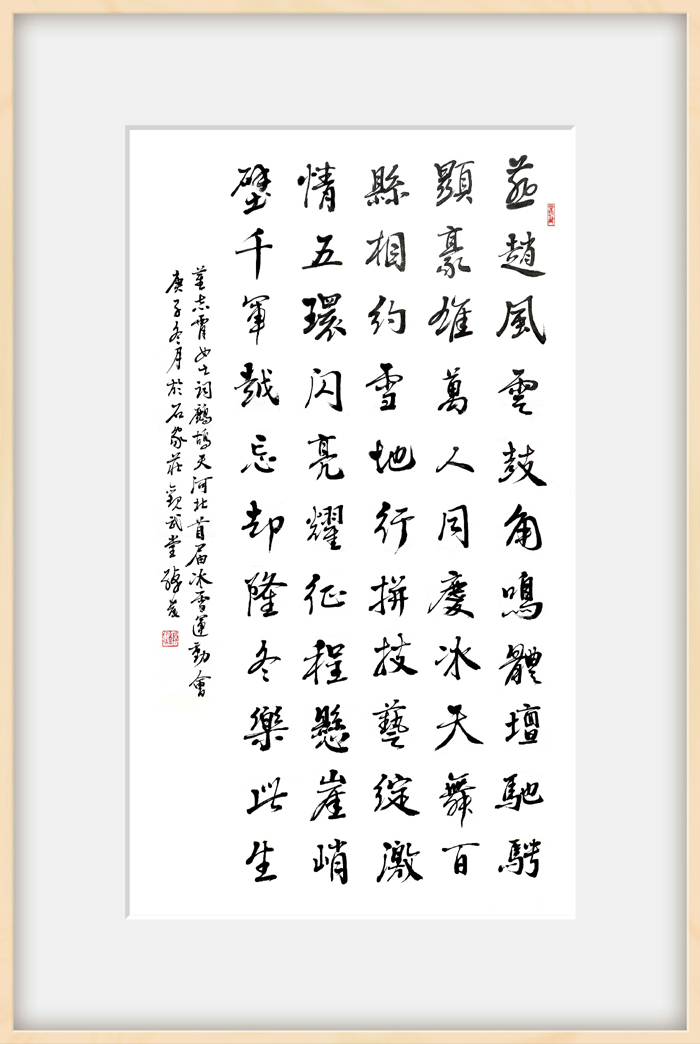 燕趙風雲鼓角鳴體壇馳騁
顯豪雄萬人同慶冰天舞百
縣相約雪地行拼技藝綻激
情五環閃亮耀征程懸崖峭
壁千軍越忘却隆冬樂此生
董志霄女士詞鷓鴣天河北首届冰雪運動會
庚子冬月於石家莊觀武堂